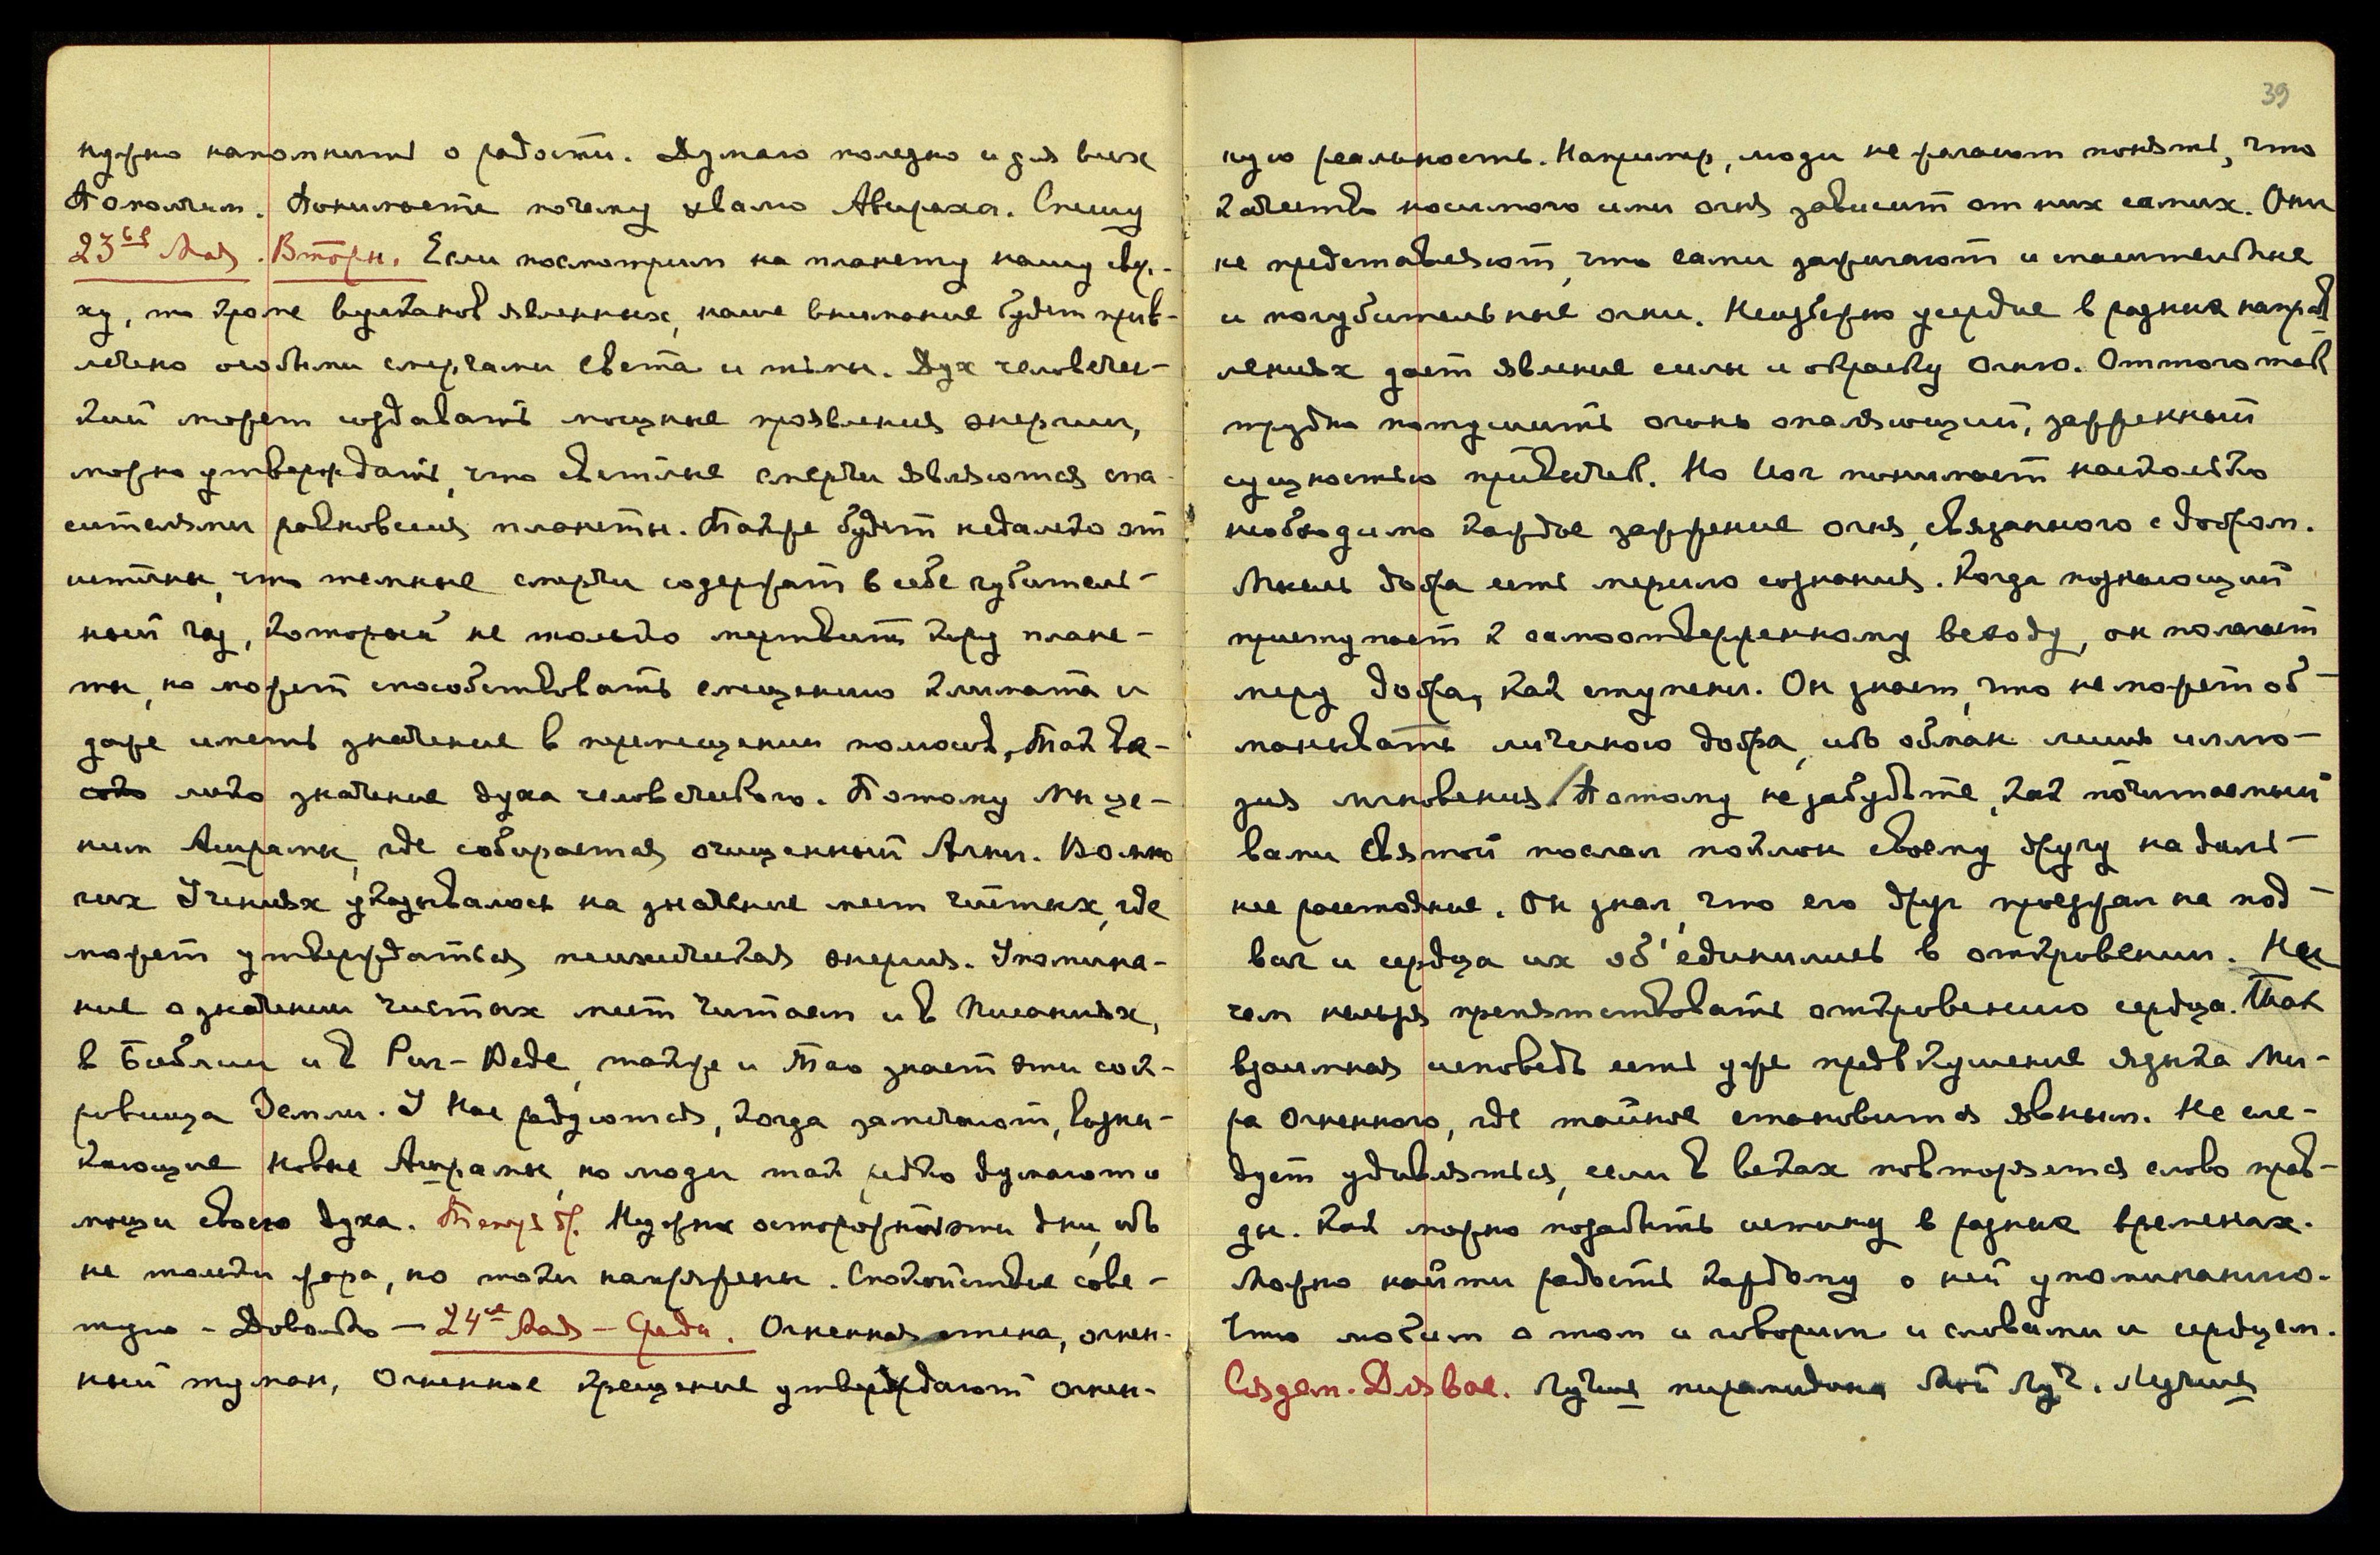 нужно напомнить о радости. Думаю полезно и для всех
Поможем. Понимаете почему хвалю Авираха. Спешу
23ье Мая. Вторн. Если посмотрим на планету нашу свер-
ху, то кроме вулканов явленных, наше внимание будет прив-
лечено особыми смерчами света и тьмы. Дух человечес-
кий может создавать мощные проявления энергии,
можно утверждать, что светлые смерчи являются спа-
сителями равновесия планеты. Также будет недалеко от
истины, что темные смерчи содержат в себе губитель-
ный газ, который не только мертвит кору плане-
ты, но может способствовать смещению климата и
даже иметь значение в перемещении полюсов. Так ве-
лико значение духа человеческого. Потому Мы це-
ним Ашрамы, где собирается очищенный Агни. Во мно
гих Учениях указывалось на значение мест чистых, где
может утверждаться психическая энергия. Упомина-
ние о значении чистых мест читаем и в Писаниях,
в Библии и в Риг-Веде, также и Тао знает эти сок-
ровища Земли. У Нас радуются, когда замечают, возни-
кающие новые Ашрамы, но люди так редко думают о
мощи своего духа. Теперь др. Нужны осторожн эти дни, ибо
не только жара, но токи напряжены. Спокойствие сове-
тую - Довольно - 24ое Мая - Среда. Огненная стена, огнен-
ный туман, Огненное крещение утверждают огнен-
39
ную реальность. Например, люди не желают понять, что
качество носимого ими огня зависит от них самих. Они
не представляют, что сами зажигают и спасительные
и погубительные огни. Неизбежно усердие в разных направ
лениях дает явление силы и окраску Огню. Оттого так
трудно потушить огонь опаляющий, зажженный
сущностью привычек. Но Йог понимает насколько
необходимо каждое зажжение огня, связанного с добром.
Мысль добра есть мерило сознания. Когда познающий
приступает к самоотверженному восходу, он полагает
меру добра, как ступени. Он знает, что не может об-
манывать личиною добра, ибо обман лишь иллю-
зия мгновения. Потому не забудьте, как почитаемый
вами Святой послал поклон своему другу на даль-
нее расстояние. Он знал, что его друг проезжал не под
вас и сердца их об'единились в откровении. Ни
чем нельзя препятствовать откровению сердца. Так
взаимная исповедь есть уже предвкушение языка Ми-
ра Огненного, где тайное становится явным. Не сле-
дует удивляться, если в веках повторяется слово прав-
ды. Как можно подавить истину в разных временах.
Можно найти радость каждому о ней упоминанию.
Что любим о том и говорим и словами и сердцем.
Сядем. Для вас. Лучше пирамидона Мой Луч. Лучше